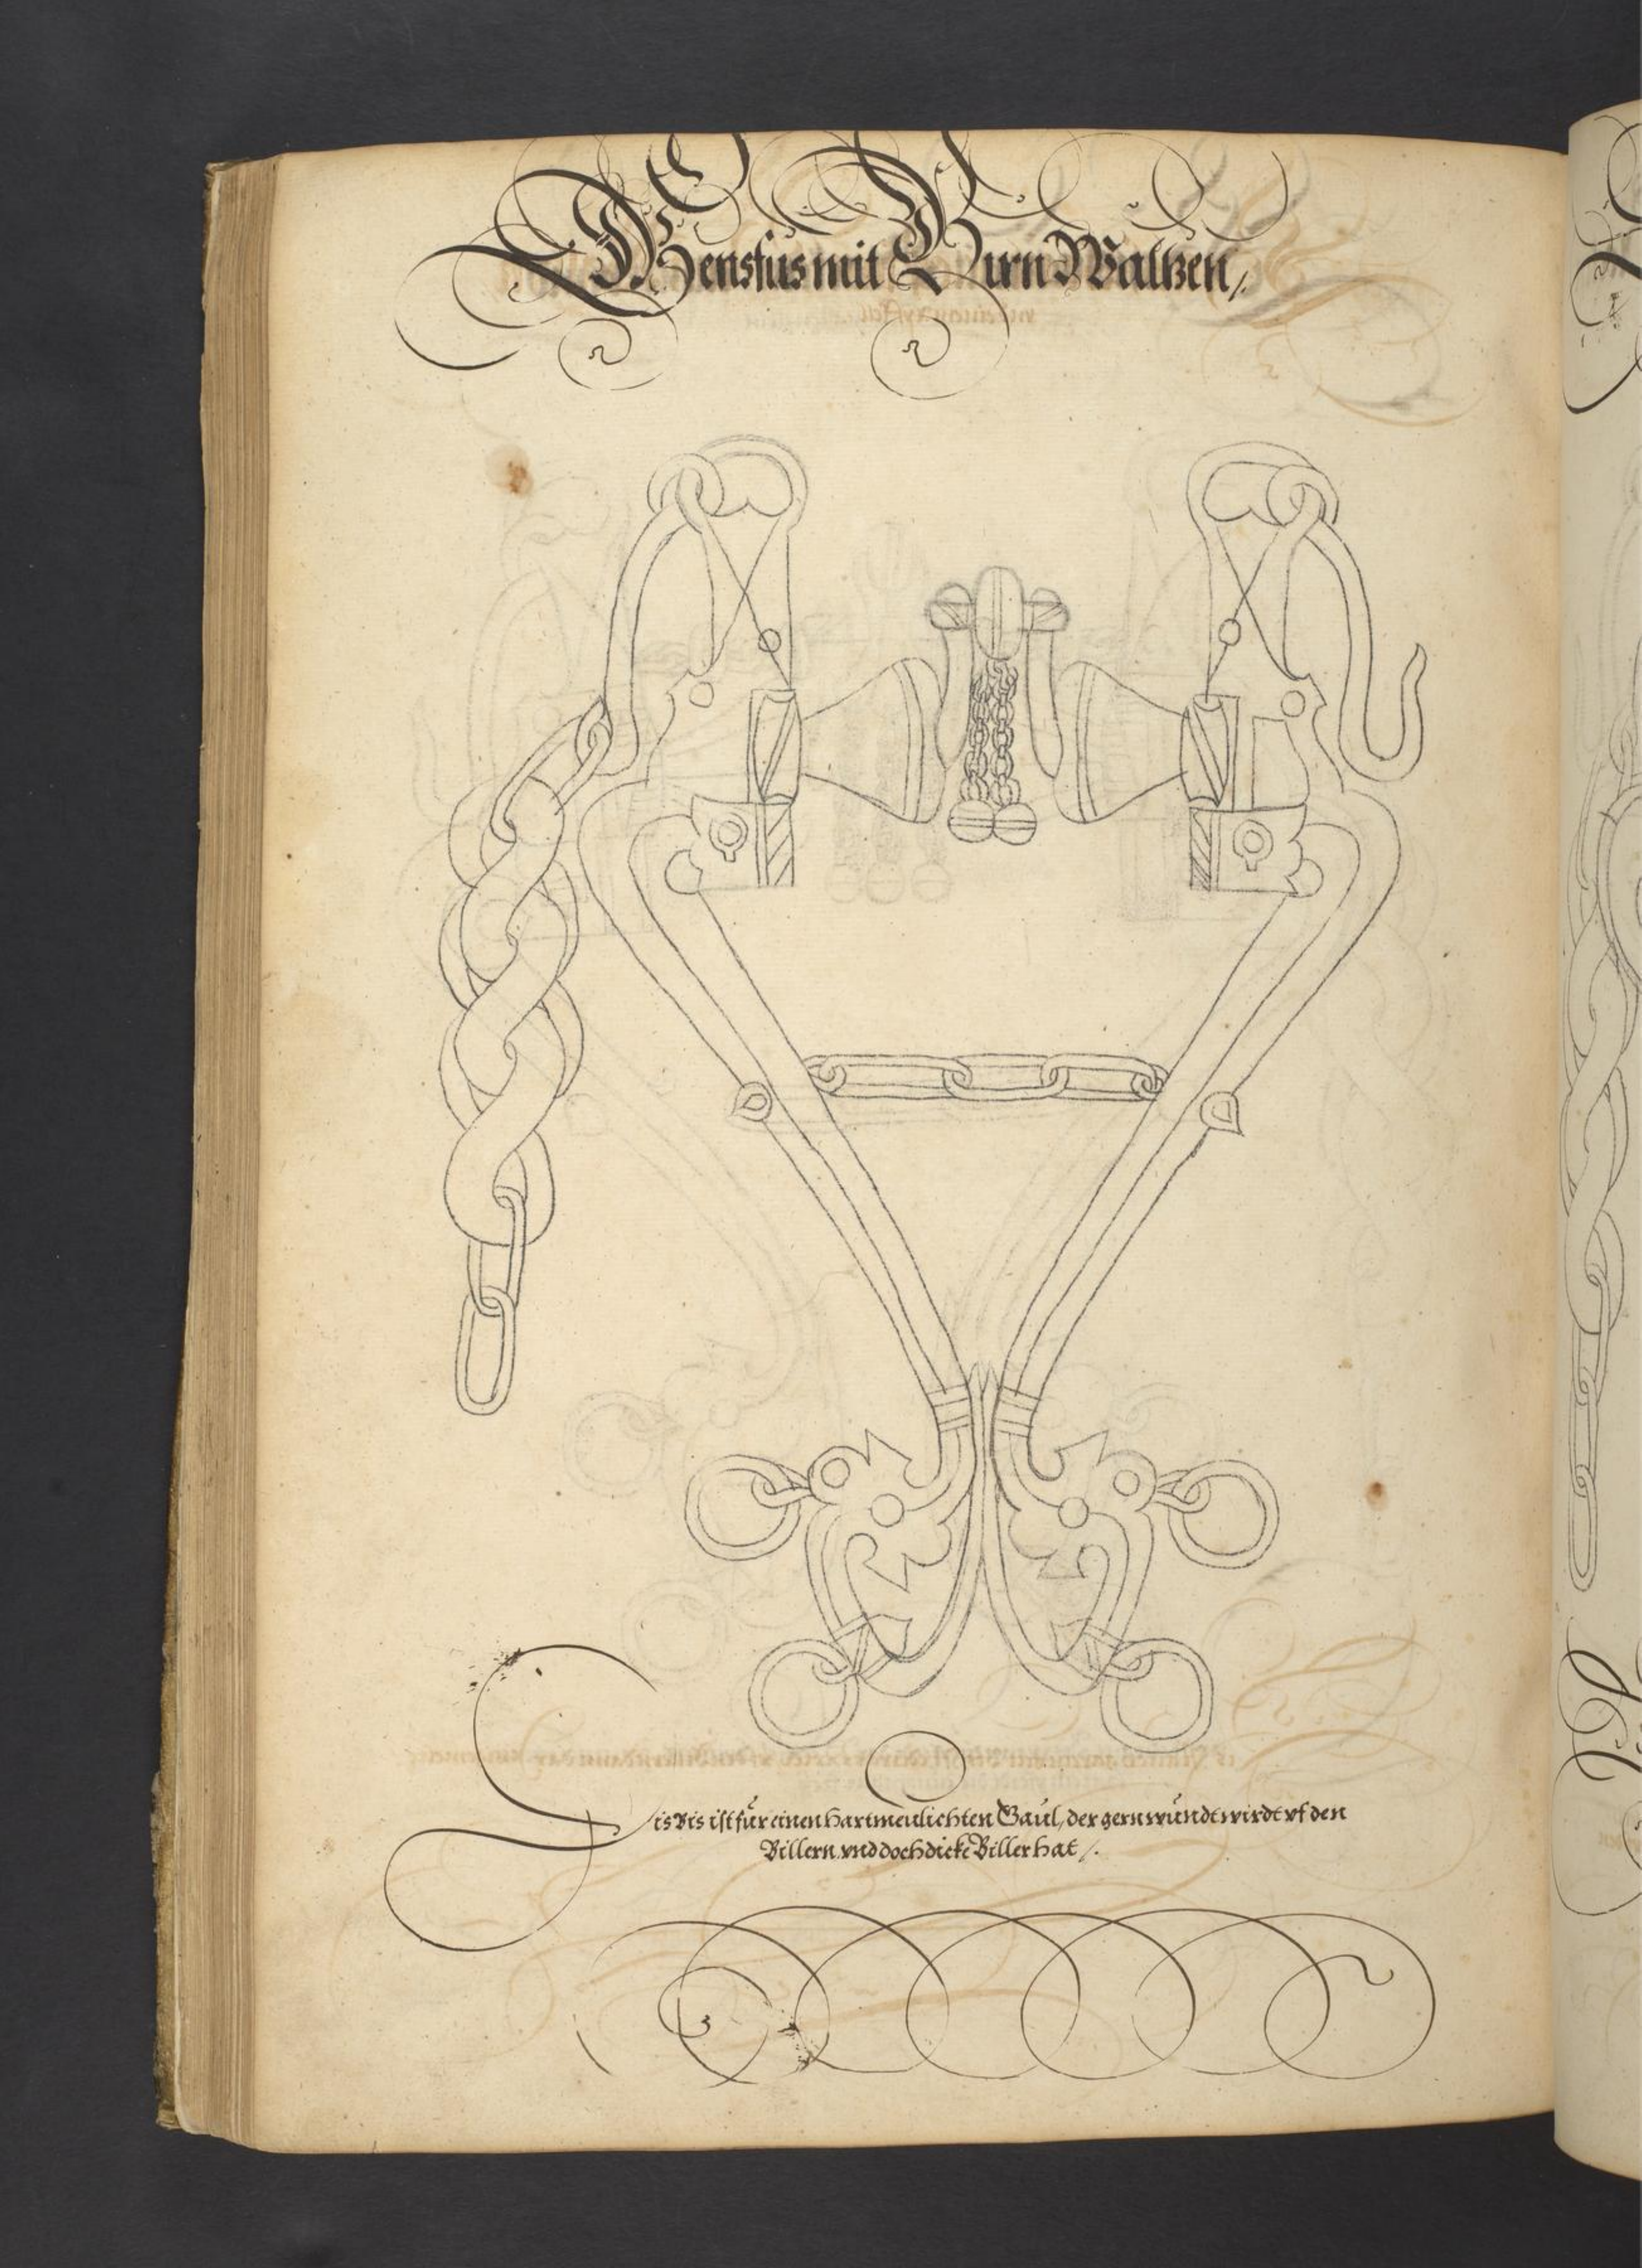 Gensfus mit Birn Waltzen /.
Dis Bis ist für einen hartmeulichten Gaul, der gern wundt wirdt vf den
Billern, vnd doch dicke Biller hat /.